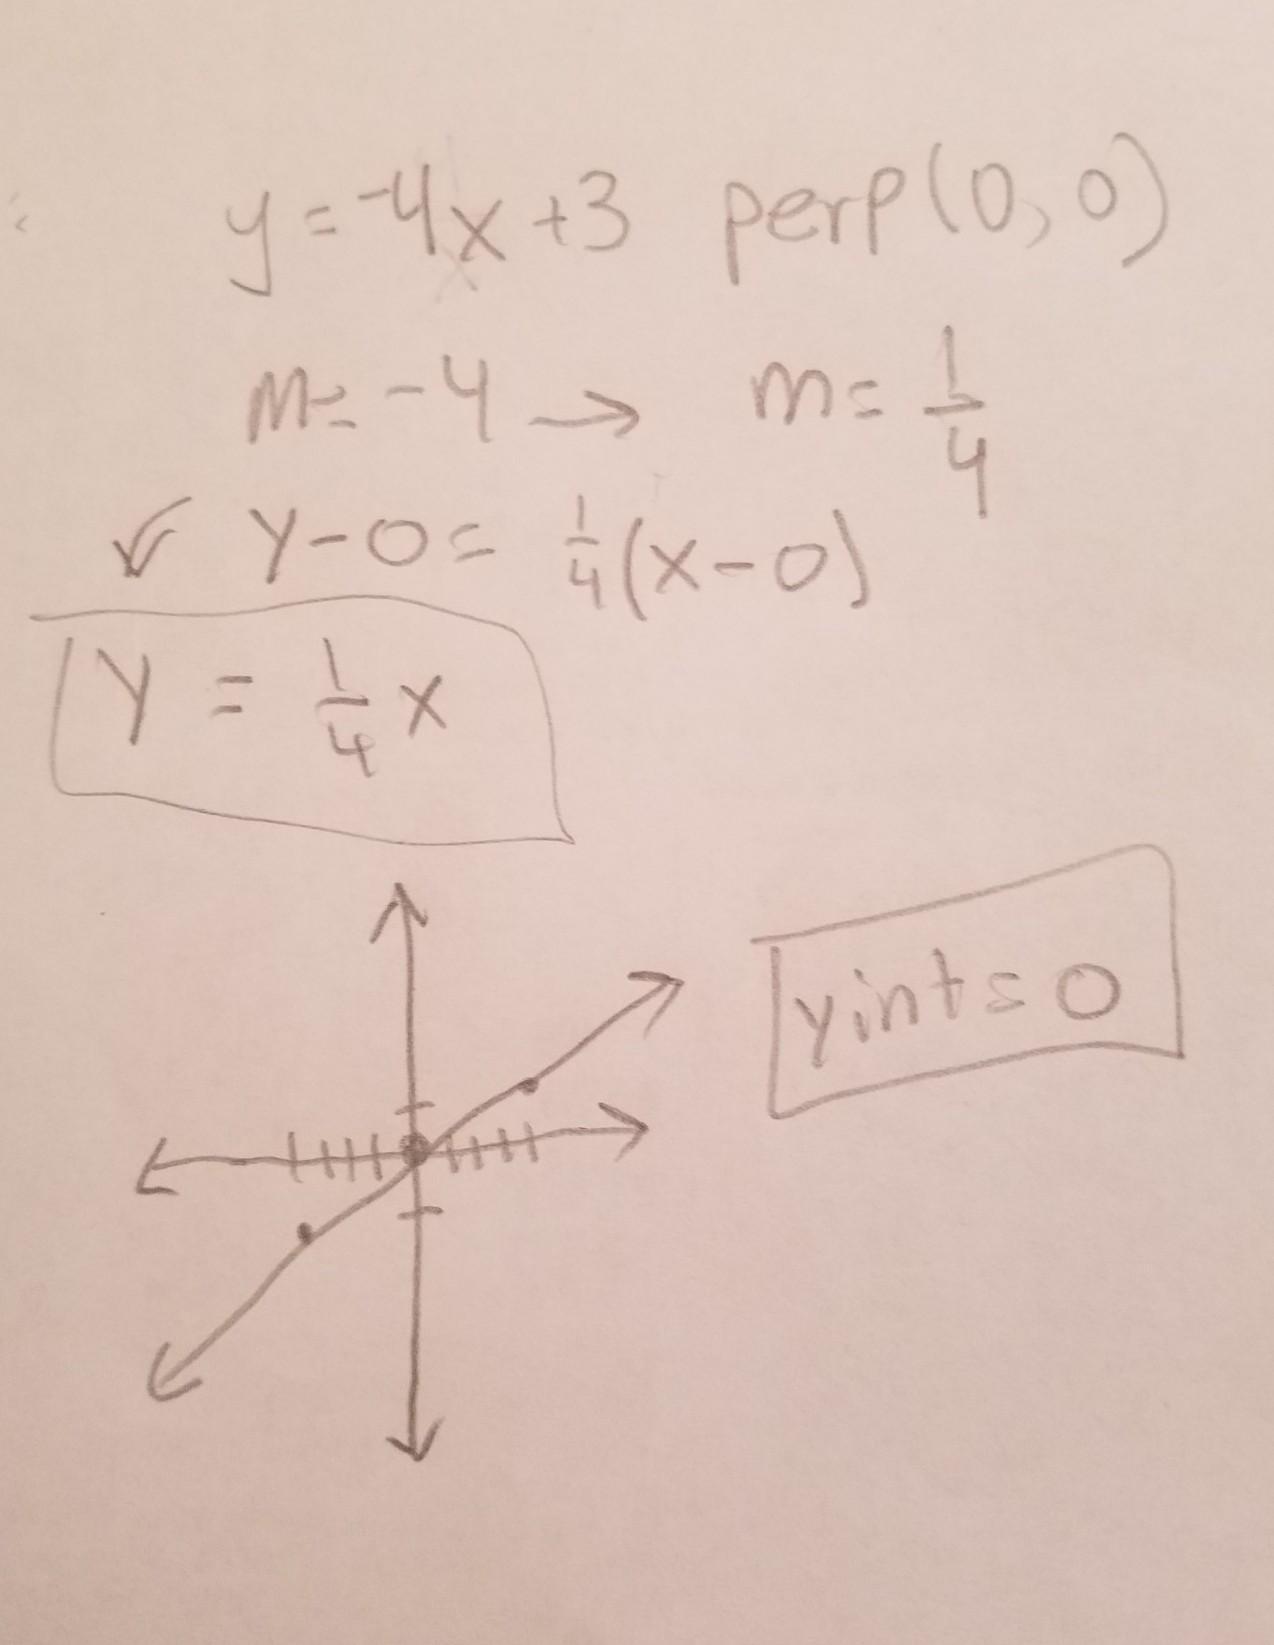 y = -4x + 3 perp (0, 0)
m = -4 → m = 1/4
y - 0 = 1/4 (x - 0)
y = 1/4 x
yint = 0